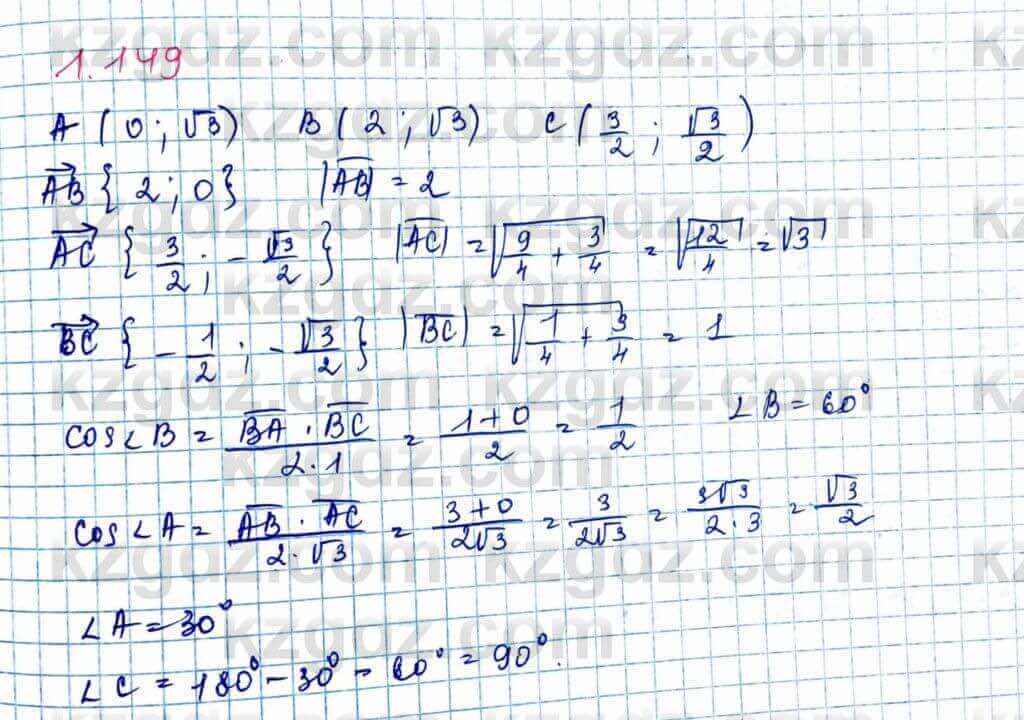 1.149
A (0; √3) B (2; √3) C (3/2; √3/2)
AB {2; 0} |AB| = 2
AC {3/2; -√3/2} |AC| = √(9/4 + 3/4) = √(12/4) = √3
BC {-1/2; -√3/2} |BC| = √(1/4 + 3/4) = 1
cos∠B = BA · BC / 2·1 = 1+0 / 2 = 1/2 ∠B = 60°
cos∠A = AB · AC / 2·√3 = 3+0 / 2√3 = 3 / 2√3 = 3√3 / 2·3 = √3/2
∠A = 30°
∠C = 180° - 30° - 60° = 90°.
kzgdz.com